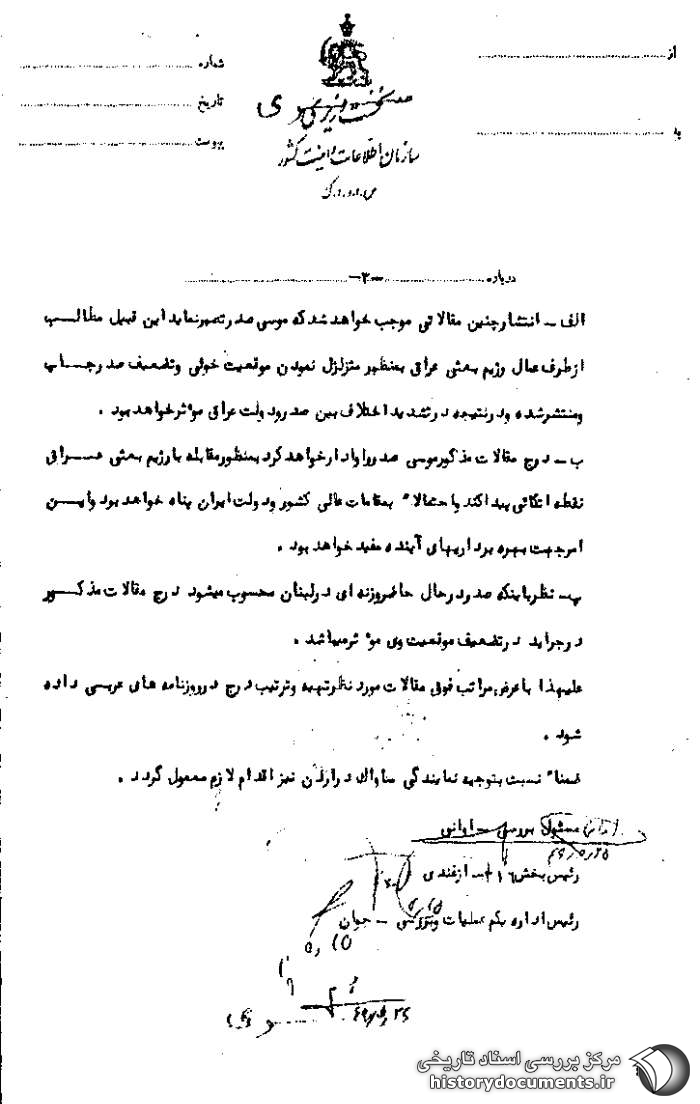 از
به
شماره
تاریخ
پیوست
نخست وزیری
سازمان اطلاعات و امنیت کشور
س.ا.و.ا.ک
درباره -۳-
الف - انتشار چنین مقالاتی موجب خواهد شد که موسی صدر تصور نماید این قبیل مطالب
از طرف عمال رژیم بعثی عراق بمنظور متزلزل نمودن موقعیت خوئی وتضعیف صدر چاپ
ومنتشر شده ودرنتیجه در تشدید اختلاف بین صدر ودولت عراق موثر خواهد بود .
ب - درج مقالات مذکور موسی صدر را وادار خواهد کرد بمنظور مقابله با رژیم بعثی عراق
نقطه اتکائی پیدا کند واحتمالا" بمقامات عالی کشور ودولت ایران پناه خواهد بود واین
امر جهت بهره برداریهای آینده مفید خواهد بود .
پ - نظر باینکه صدر در حال حاضر وزنه ای در لبنان محسوب میشود درج مقالات مذکور
در جراید در تضعیف موقعیت وی موثر میباشد .
علیهذا با عرض مراتب فوق مقالات مورد نظر تهیه وترتیب درج در روزنامه های عربی داده
شود .
ضمنا" نسبت بتوجیه نمایندگی ساواک در اردن نیز اقدام لازم معمول گردد .
مسئول بررسی - اوانی
رئیس بخش ۳۱۶ - ازغندی
رئیس اداره یکم عملیات وبررسی - جوان
مرکز بررسی اسناد تاریخی
historydocuments.ir